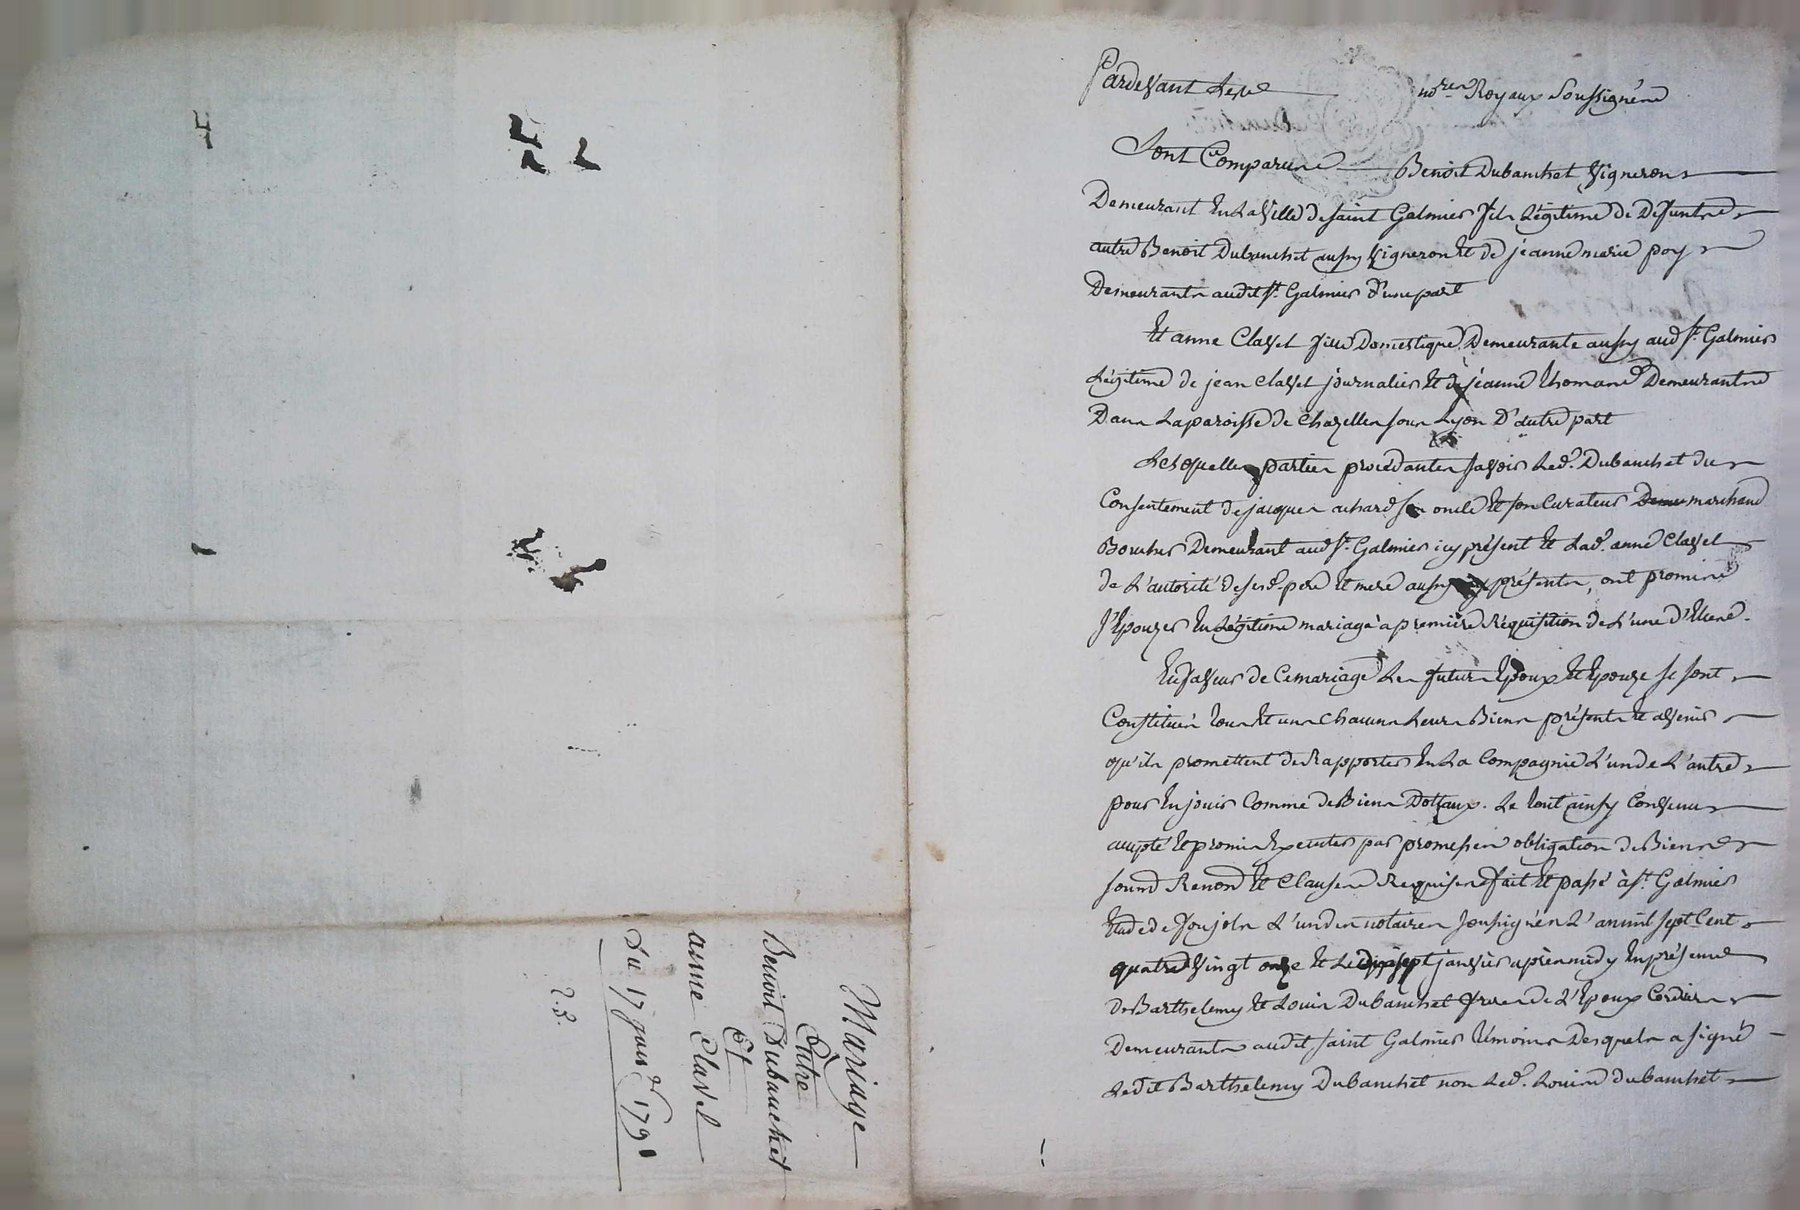 Mariage
Entre
Benoit Dubanchet
Et
anne Clavel
Du 17 janv.er 1791
Pardevant Les nores Royaux Soussignés
Sont Comparus Benoit Dubanchet Vigneron
Demeurant En La Ville de saint Galmier fils Légitime de Defunts
autre Benoit Dubanchet aussy Vigneron Et de jeanne marie poy
Demeurants audit st. Galmier d'une part
Et anne Clavel fille Domestique Demeurante aussy aud st. Galmier
Légitime de jean Clavel journalier Et de jeanne thomas Demeurants
Dans La paroisse de Chazelles sour Lyon D'autre part
Lesquelles parties procédantes savoir Led. Dubanchet du
Consentement de jacques achard son oncle Et son Curateur marchand
Boucher Demeurant aud st. Galmier icy présent Et Lad. anne Clavel
de L'autorité de sesd. pere Et mere aussy présents, ont promis
s'Epouzer En Légitime mariage a premiere Réquisition de L'une d'Elles.
En faveur de Ce mariage Les futurs Epoux Et Epouze se sont
Constitués tous Et uns chacuns Leurs Biens présents Et avenir
qu'ils promettent de Rapporter En La Compagnie L'un de L'autre
pour En jouir Comme de Biens Dottaux. Le tout ainsy Convenu
accepté Et promis Executer par promesses obligation de Biens
soumd Renond Et Clauses Requises fait Et passé à st. Galmier
Etude de L'un des notaires soussignés L'an mil sept Cent
quatre Vingt onze Et Le dix sept janvier après midy En présence
de Barthelemy Et Louis Dubanchet freres de L'Epoux Cordiers
Demeurants audit saint Galmier témoins Desquels a signé
Ledit Barthelemy Dubanchet non Led. Louis dubanchet